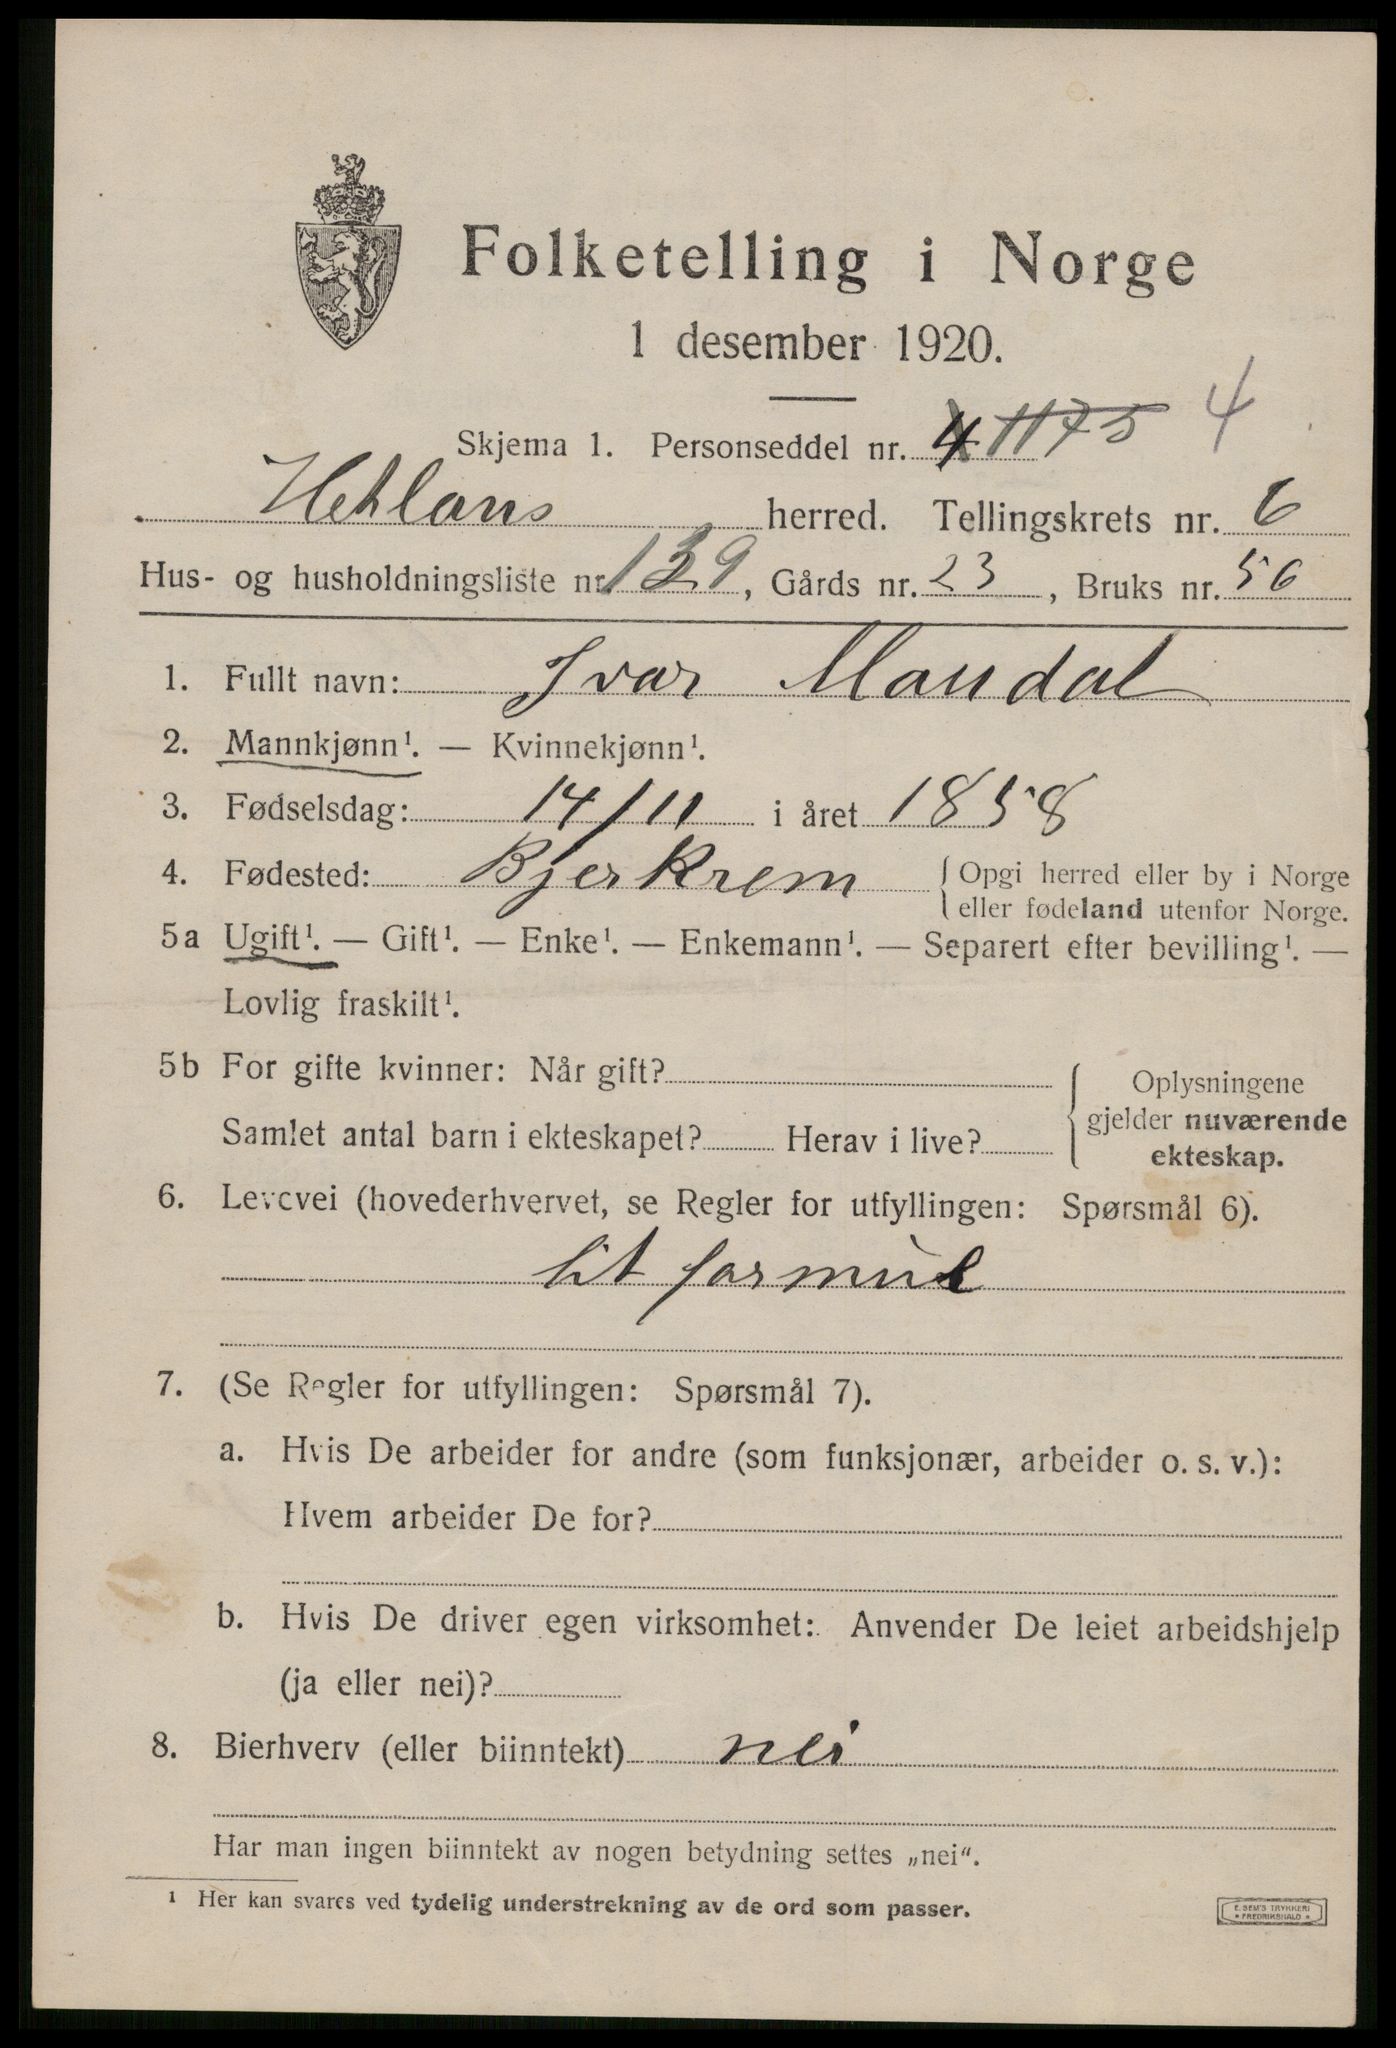 Folketelling i Norge
1 desember 1920.
Skjema 1. Personseddel nr. 4 1175 4
Hetlans herred. Tellingskrets nr. 6
Hus- og husholdningsliste nr. 139, Gårds nr. 23, Bruks nr. 56
1. Fullt navn: Ivar Maudal
2. Mannkjønn¹. — Kvinnekjønn¹.
3. Fødselsdag: 14/11 i året 1858
4. Fødested: Bjerkrem { Opgi herred eller by i Norge
eller fødeland utenfor Norge.
5a Ugift¹. — Gift¹. — Enke¹. — Enkemann¹. — Separert efter bevilling¹. —
Lovlig fraskilt¹.
5b For gifte kvinner: Når gift?
Samlet antal barn i ekteskapet? Herav i live?
Oplysningene
gjelder nuværende
ekteskap.
6. Levevei (hovederhvervet, se Regler for utfyllingen: Spørsmål 6).
lit formue
7. (Se Regler for utfyllingen: Spørsmål 7).
a. Hvis De arbeider for andre (som funksjonær, arbeider o. s. v.):
Hvem arbeider De for?
b. Hvis De driver egen virksomhet: Anvender De leiet arbeidshjelp
(ja eller nei)?
8. Bierhverv (eller biinntekt) nei
Har man ingen biinntekt av nogen betydning settes „nei“.
¹ Her kan svares ved tydelig understrekning av de ord som passer.
E. SEM'S TRYKKERI
• FREDRIKSHALD •